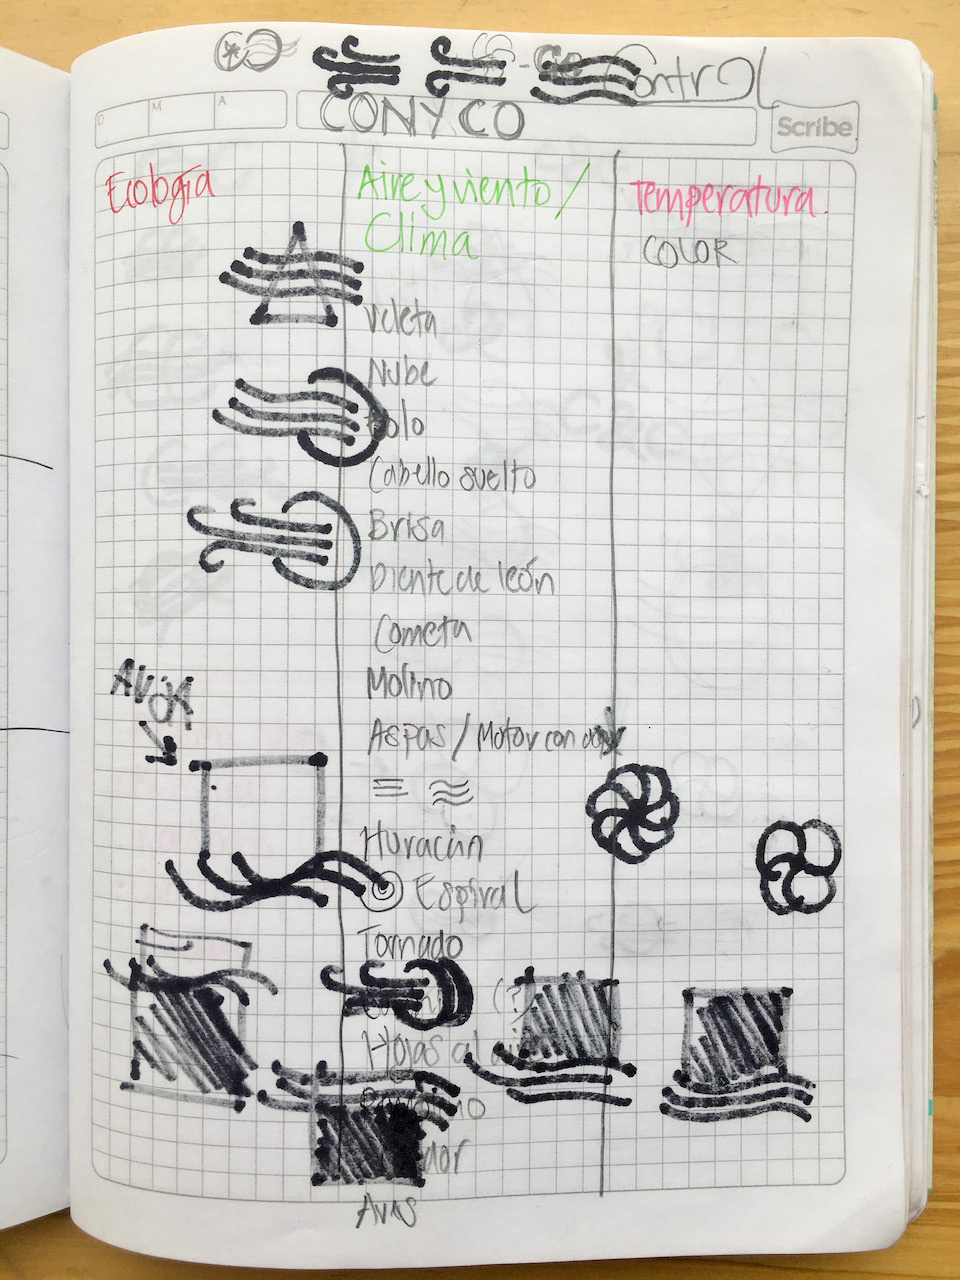 Control
D M A
CONYCO
Scribe
Ecología
Aire y viento /
Clima
Temperatura.
COLOR
Veleta
Nube
Cabello suelto
Brisa
Diente de león
Cometa
Molino
Aspas / Motor con
Huracán
Espiral
Tornado
(?)
Hojas al
Aves